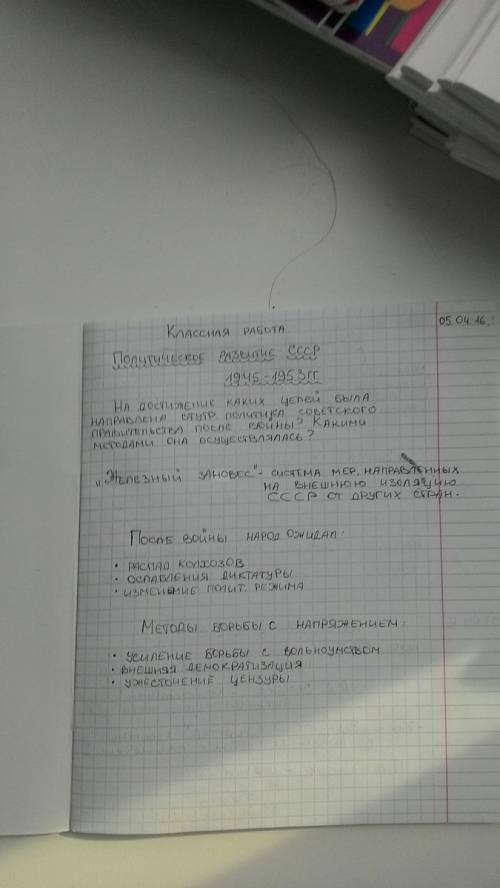 05.04.16.
Классная работа.
Политическое развитие СССР
1945-1953 гг.
На достижение каких целей была
направлена внутр. политика советского
правительства после войны? Какими
методами она осуществлялась?
„Железный зановес"- система мер, направленных
на внешнюю изоляцию
СССР от других стран.
После войны народ ожидал:
• распад колхозов
• ослабления диктатуры
• изменение полит. режима
Методы борьбы с напряжением:
• усиление борьбы с вольнoумством
• внешняя демократизация
• ужесточение цензуры